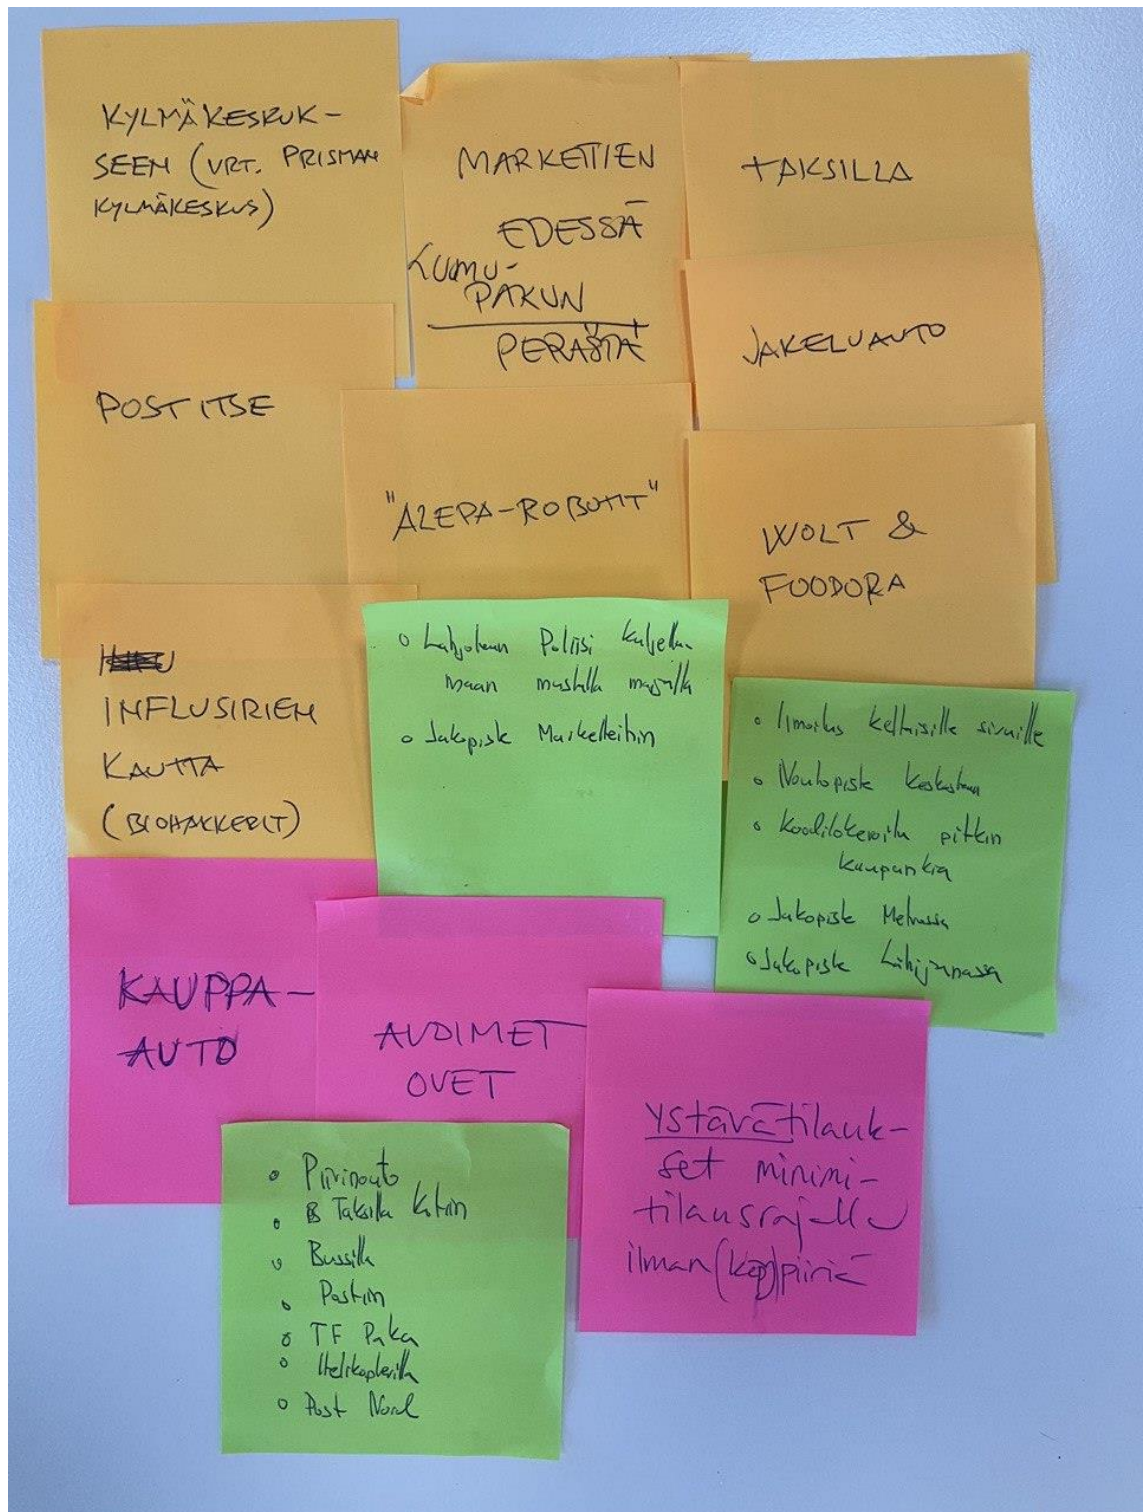 KYLMÄKESKUK-
SEEN (VRT. PRISMAN
KYLMÄKESKUS)
MARKETTIEN
EDESSÄ
KUMU-
PAKUN
PERÄSTÄ
TAKSILLA
JAKELUAUTO
POSTITSE
"ALEPA-ROBOTIT"
WOLT &
FOODORA
INFLUSIRIEN
KAUTTA
(BIOHAKKERIT)
o Lahjotaan Poliisi kuljetta-
maan mustalla maijalla
o Jakopiste Marketteihin
o Ilmoitus keltaisille sivuille
o Noutopiste keskustaan
o Koodilokeroita pitkin
kaupunkia
o Jakopiste Metrossa
o Jakopiste Lähijunassa
KAUPPA-
AUTO
AVOIMET
OVET
Ystävätilauk-
set minimi-
tilausrajalla
ilman piiriä
o Piirinouto
o Taksilla kotiin
o Bussilla
o Postiin
o TF Paka
o Helikopterilla
o Post Nord